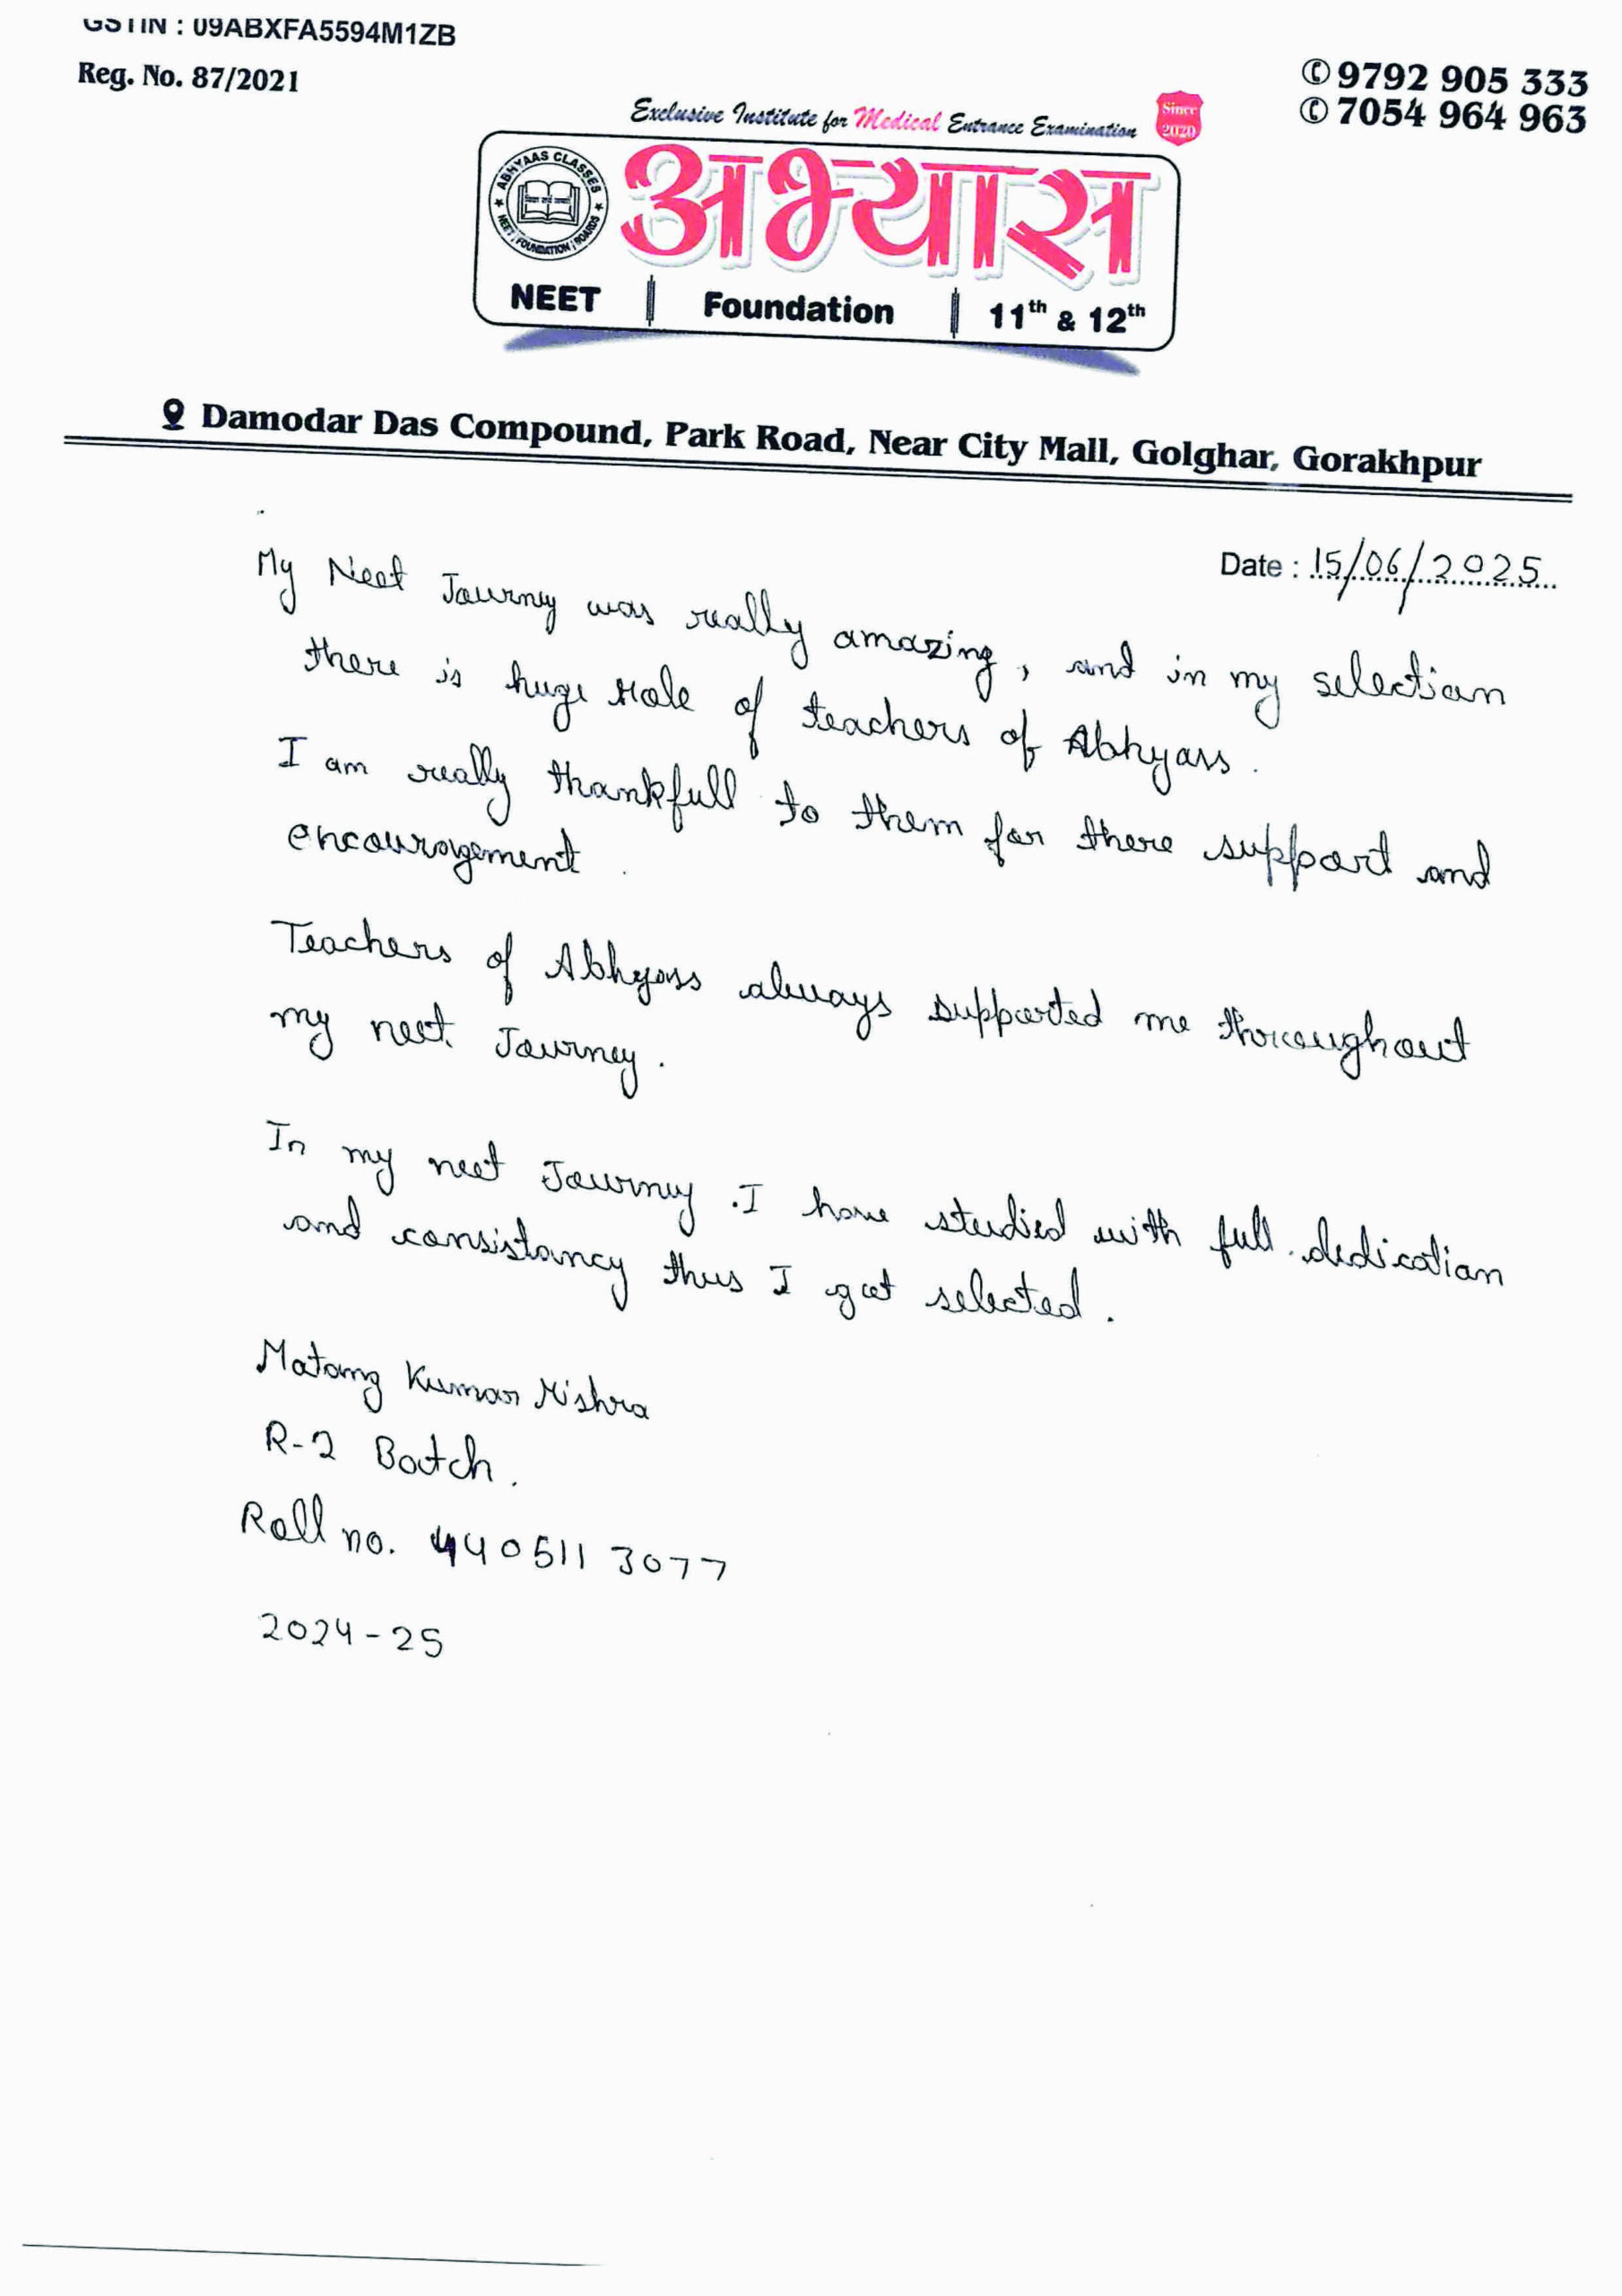 GSTIN : 09ABXFA5594M1ZB
Reg. No. 87/2021
✆ 9792 905 333
✆ 7054 964 963
Exclusive Institute for Medical Entrance Examination
Since 2020
ABHYAAS CLASSES
NEET | FOUNDATION | BOARDS
अभ्यास
NEET | Foundation | 11th & 12th
Damodar Das Compound, Park Road, Near City Mall, Golghar, Gorakhpur
Date : 15/06/2025
My Neet Journey was really amazing, and in my selection
there is huge role of teachers of Abhyass.
I am really thankfull to them for there support and
encouragement.
Teachers of Abhyass always supported me thoroughout
my neet Journey.
In my neet Journey .I have studied with full dedication
and consistancy thus I got selected.
Matang Kumar Mishra
R-2 Batch.
Roll no. 4405113077
2024-25